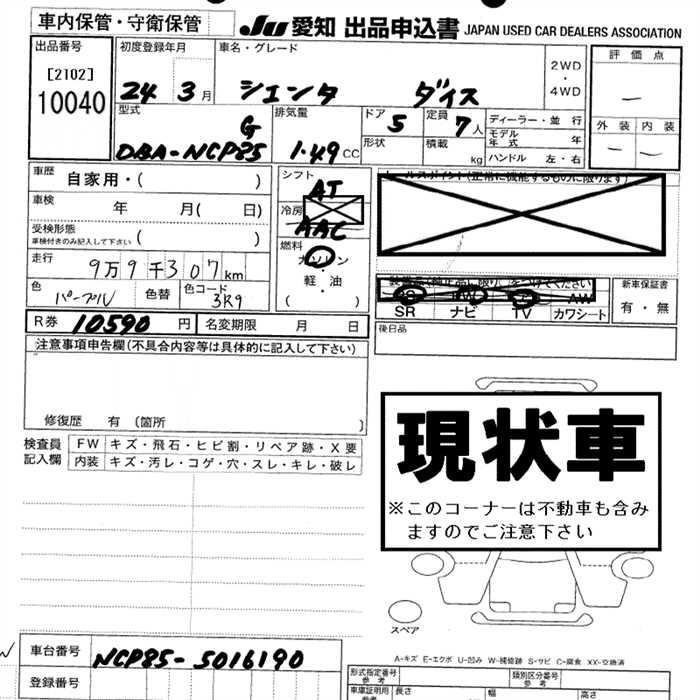 車内保管・守衛保管
JU 愛知 出品申込書 JAPAN USED CAR DEALERS ASSOCIATION
出品番号
[2102]
10040
初度登録年月
24 3月
車名・グレード
シエンタ ダイス
2WD
・
4WD
評価点
—
外装 内装
— —
型式
G
DBA-NCP85
排気量
1.49 CC
ドア
5
形状
定員
7人
積載
kg
ディーラー・並行
モデル年式 年
ハンドル 左・右
車歴
自家用・( )
車検
年 月( 日)
受検形態
車検付きのみ記入して下さい ( )
走行
9万9千307km
色
パープル
色替
色コード
3R9
シフト
AT
冷房
AAC
燃料
ガソリン
・
軽・油
( )
セールスポイント(正常に機能するものに限ります)
SR ナビ TV カワシート
AW
新車保証書
有・無
後日品
R券 10590円 名変期限 月 日
注意事項申告欄(不具合内容等は具体的に記入して下さい)
修復歴 有 (箇所 )
検査員
記入欄
FW キズ・飛石・ヒビ割・リペア跡・X要
内装 キズ・汚レ・コゲ・穴・スレ・キレ・破レ
現状車
※このコーナーは不動車も含み
ますのでご注意下さい
スペア
A-キズ E-エクボ U-凹み W-補修跡 S-サビ C-腐食 XX-交換済
車台番号 NCP85-5016190
登録番号
形式指定番号
参考
類別区分番号
参考
車庫証明用
参考
長さ 幅 高さ